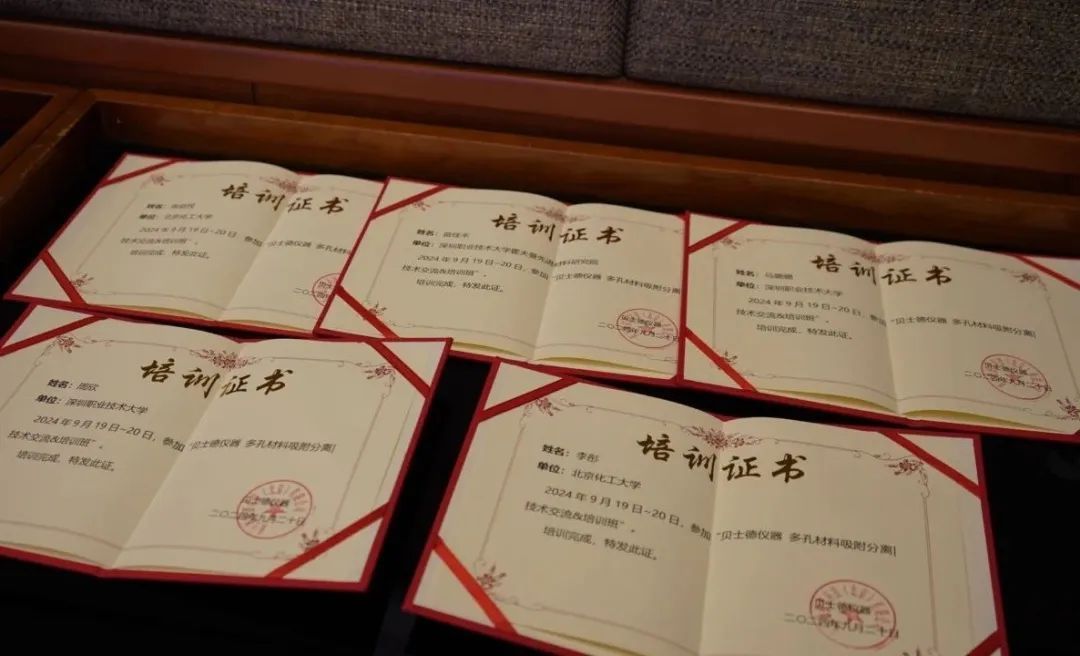 培训证书
姓名：
单位：北京化工大学
2024年9月19日~20日，参加"贝士德仪器 多孔材料
技术交流&培训班"。
培训完成，特发此证。
培训证书
姓名：
单位：深圳职业技术大学霍夫曼先进材料研究院
2024年9月19日~20日，参加"贝士德仪器 多孔材料吸附分离
技术交流&培训班"。
培训完成，特发此证。
贝士德仪器
二〇二四年九月二十日
培训证书
姓名：
单位：深圳职业技术大学
2024年9月19日~20日，参加"贝士德仪器 多孔材料吸附分离
技术交流&培训班"。
培训完成，特发此证。
贝士德仪器
二〇二四年九月二十日
培训证书
姓名：
单位：深圳职业技术大学
2024年9月19日~20日，参加"贝士德仪器 多孔材料吸附分离
技术交流&培训班"。
培训完成，特发此证。
贝士德仪器
二〇二四年九月二十日
培训证书
姓名：李彤
单位：北京化工大学
2024年9月19日~20日，参加"贝士德仪器 多孔材料吸附分离
技术交流&培训班"。
培训完成，特发此证。
贝士德仪器
二〇二四年九月二十日